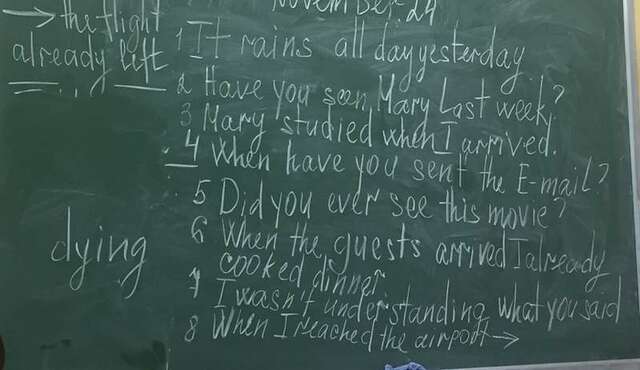 November 24
→ the flight
already left
1 It rains all day yesterday
2 Have you seen Mary Last week?
3 Mary studied when I arrived.
4 When have you sent the E-mail?
5 Did you ever see this movie?
6 When the guests arrived I already
cooked dinner
7 I wasn't understanding what you said
8 When I reached the airport →
dying